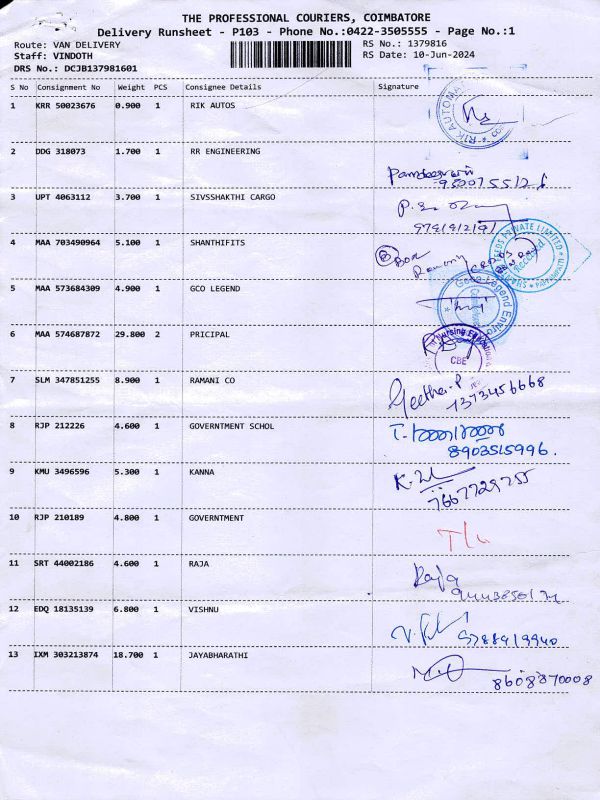 THE PROFESSIONAL COURIERS, COIMBATORE
Delivery Runsheet - P103 - Phone No.:0422-3505555 - Page No.:1
Route: VAN DELIVERY RS No.: 1379816
Staff: VINDOTH RS Date: 10-Jun-2024
DRS No.: DCJB137981601
S No Consignment No Weight PCS Consignee Details Signature
1 KRR 50023676 0.900 1 RIK AUTOS
RIK AUTOMA
2 DDG 318073 1.700 1 RR ENGINEERING
3 UPT 4063112 3.700 1 SIVSSHAKTHI CARGO
4 MAA 703490964 5.100 1 SHANTHIFITS
EEDS PRIVATE LIMITED
Received
5 MAA 573684309 4.900 1 GCO LEGEND
Geco Legend Enviro
6 MAA 574687872 29.800 2 PRICIPAL
Nursing
CBE
7 SLM 347851255 8.900 1 RAMANI CO
Geetha.P
1373456668
8 RJP 212226 4.600 1 GOVERNMENT SCHOL
8903515996.
9 KMU 3496596 5.300 1 KANNA
7667729755
10 RJP 210189 4.800 1 GOVERNTMENT
11 SRT 44002186 4.600 1 RAJA
Raja
12 EDQ 18135139 6.800 1 VISHNU
9788919940
13 IXM 303213874 18.700 1 JAYABHARATHI
8608870008